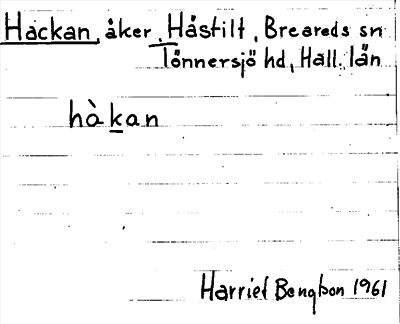 Hackan, åker, Håstilt, Breareds sn
Tönnersjö hd, Hall. län
hàkan
Harriet Bengtson 1961